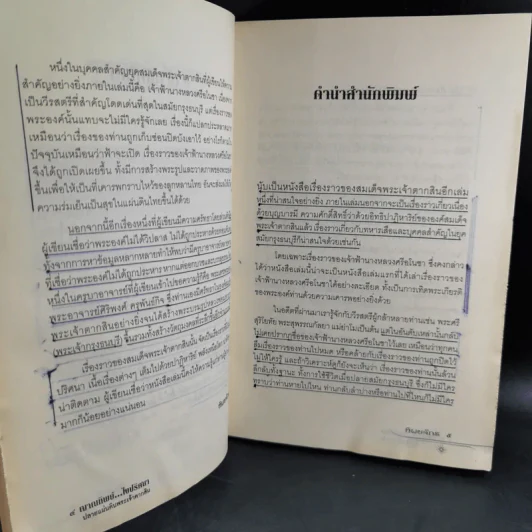 หนึ่งในบุคคลสำคัญยุคสมเด็จพระเจ้าตากสินที่ผู้เขียนให้ความ
สำคัญอย่างยิ่งภายในเล่มนี้คือ เจ้าฟ้านางหลวงศรีอโนชา
เป็นวีรสตรีที่สำคัญโดดเด่นที่สุดในสมัยกรุงธนบุรี แต่เรื่องราวของ
พระองค์นั้นแทบจะไม่มีใครรู้จักเลย เรื่องนี้ก็แปลกประหลาด
เหมือนว่าเรื่องของท่านถูกเก็บซ่อนปิดบังเอาไว้
ปัจจุบันเหมือนว่าฟ้าจะเปิด เรื่องราวของเจ้าฟ้านางหลวงศรีอโนชา
จึงได้ถูกเปิดเผยขึ้น ทั้งมีการสร้างพระรูปและวาดภาพของพระองค์
ขึ้นเพื่อให้เป็นที่เคารพกราบไหว้ของลูกหลานไทย อันจะส่งผลให้
ความร่มเย็นเป็นสุขในแผ่นดินไทยขึ้นได้ด้วย
นอกจากนี้อีกเรื่องหนึ่งที่ผู้เขียนมีความ
ผู้เขียนเชื่อว่าพระองค์ไม่ได้วิปลาส ไม่ได้ถูกประหาร
ทั้งจากการหาข้อมูลหลากหลายทำให้พบว่ามีครูบาอาจารย์
ที่เชื่อว่าพระองค์ไม่ได้ถูกประหาร
หนึ่งในครูบาอาจารย์ที่ผู้เขียน
พระอาจารย์ศิริพงศ์ ครุพันธ์กิจ ซึ่งท่านเองมีศรัทธา
พระเจ้าตากสินอย่างยิ่งจนได้สร้างพระบรมรูป
(พระเจ้ากรุงธนบุรี) ขึ้นรวมทั้งสร้างวัตถุมงคล
เรื่องราวของสมเด็จพระเจ้าตากสินนั้น
ปริศนา เนื้อเรื่องต่างๆ เต็มไปด้วยปาฏิหาริย์
น่าติดตาม ผู้เขียนเชื่อว่าหนังสือเล่มนี้คงให้ความรู้
มากก็น้อยอย่างแน่นอน
๘ ญาณทิพย์...ไขปริศนา
ปลายแผ่นดินพระเจ้าตากสิน
คำนำสำนักพิมพ์
นับเป็นหนังสือเรื่องราวของสมเด็จพระเจ้าตากสินอีกเล่ม
หนึ่งที่น่าสนใจอย่างยิ่ง ภายในเล่มนอกจากจะเป็นเรื่องราวเกี่ยวเนื่อง
ด้วยบุญบารมี ความศักดิ์สิทธิ์ว่าด้วยอิทธิปาฏิหาริย์ขององค์สมเด็จ
พระเจ้าตากสินแล้ว เรื่องราวเกี่ยวกับทหารเสือและบุคคลสำคัญในยุค
สมัยกรุงธนบุรีก็น่าสนใจด้วยเช่นกัน
โดยเฉพาะเรื่องราวของเจ้าฟ้านางหลวงศรีอโนชา ซึ่งคงกล่าว
ได้ว่าหนังสือเล่มนี้น่าจะเป็นหนังสือเล่มแรกที่ได้เล่าเรื่องราวของ
เจ้าฟ้านางหลวงศรีอโนชาได้อย่างละเอียด ทั้งเป็นการเทิดพระเกียรติ
ของพระองค์ท่านด้วยความเคารพอย่างยิ่งด้วย
ในอดีตที่ผ่านมาเรารู้จักกับวีรสตรีผู้กล้าหลายท่านเช่น พระศรี
สุริโยทัย พระสุพรรณกัลยา แม่ย่าโมเป็นต้น แต่ในอันดับเหล่านั้นกลับ
ไม่เคยปรากฏชื่อของเจ้าฟ้านางหลวงศรีอโนชาไว้เลย เหมือนว่าทุกคน
ลืมเรื่องราวของท่านไปหมด หรือคล้ายกับเรื่องราวของท่านถูกปิดไว้
ไม่ให้ใครรู้ และถ้าวิเคราะห์ดูก็ยังจะเห็นว่า เรื่องราวของท่านนั้นล้วน
ลึกลับทั้งฐานะ ทั้งการใช้ชีวิตเมื่อปลายสมัยกรุงธนบุรี ซึ่งก็ไม่มีใคร
ทราบว่าท่านหายไปไหน ท่านกลับลำปางหรือท่านไปที่ไหนก็ไม่มีใคร
๙